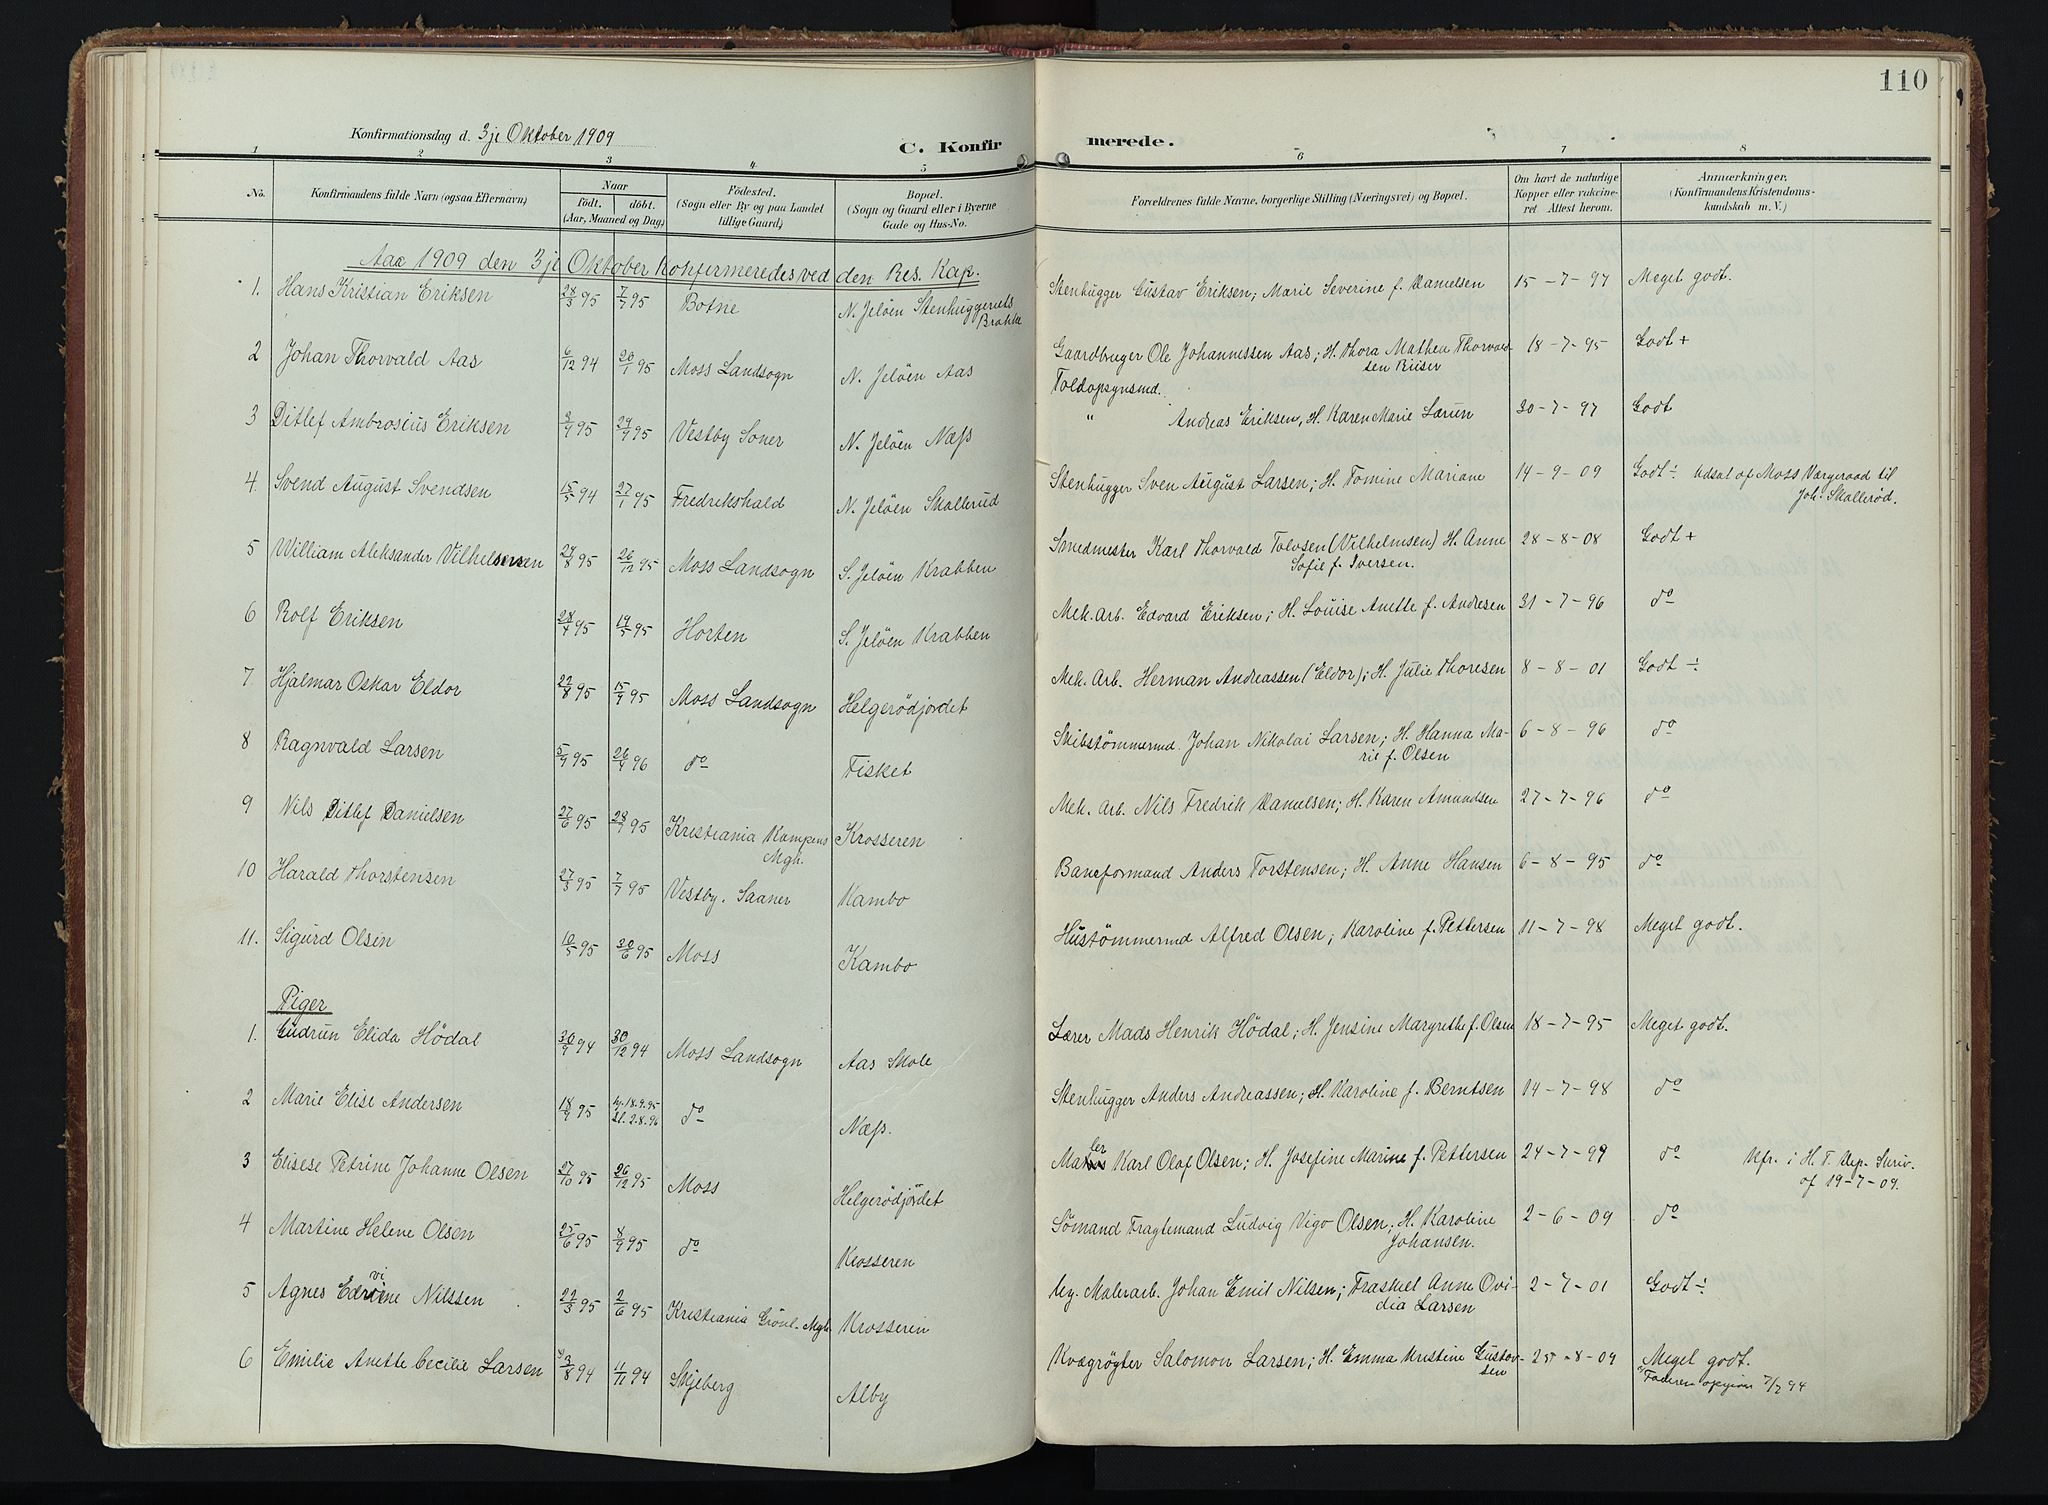 110
Konfirmationsdag d. 3je Oktober 1909
C. Konfirmerede.
1 2 3 4 5 6 7 8
No.
Konfirmandens fulde Navn (ogsaa Efternavn)
Naar
født. døbt.
(Aar, Maaned og Dag)
Fødested.
(Sogn eller By og paa Landet
tillige Gaard)
Bopæl.
(Sogn og Gaard eller i Byerne
Gade og Hus-No.
Forældrenes fulde Navne, borgerlige Stilling (Næringsvei) og Bopæl.
Om havt de naturlige
Kopper eller vakcine-
ret Attest herom.
Anmærkninger.
(Konfirmandens Kristendoms-
kundskab m. V.)
Aar 1909 den 3je Oktober konfirmeredes ved den Res. Kap.
1. Hans Kristian Eriksen 28/3 95 7/7 95 Botne N. Jeløen Stenhuggernes Brakke Stenhugger Gustav Eriksen; Marie Severine f. Danielsen 15-7-97 Meget godt.
2 Johan Thorvald Aas 6/12 94 20/1 95 Moss Landsogn N. Jeløen Aas Gaardbruger Ole Johannessen Aas; H. Thora Mathea Thorvaldsen Riiser 18-7-95 Godt +
3 Ditlef Ambrosius Eriksen 3/9 95 29/9 95 Vestby Soner N. Jeløen Næss Toldopsynsmd. " Andreas Eriksen, H. Karen Marie Larun 30-7-97 Godt
4. Svend August Svendsen 15/5 94 27/1 95 Fredrikshald N. Jeløen Skallerud Stenhugger Sven August Larsen; H. Tomine Mariane 14-9-09 Godt ÷ Udsat af Moss Værgeraad til Joh. Skallerød.
5 William Aleksander Vilhelmsen 29/8 95 26/12 95 Moss Landsogn S. Jeløen Krabben Smedmester Karl Thorvald Tolvsen (Vilhelmsen) H. Anne Sofie f. Iversen. 28-8-08 Godt +
6 Rolf Eriksen 28/4 95 19/5 95 Horten S. Jeløen Krabben Mek. Arb. Edvard Eriksen; H. Louise Anette f. Andresen 31-7-96 do
7. Hjalmar Oskar Eldor 22/8 95 15/9 95 Moss Landsogn Helgerødjordet Mek. Arb. Herman Andreassen (Eldor); H. Julie Thoresen 8-8-01 Godt ÷
8 Ragnvald Larsen 5/9 95 26/4 96 do Fisket Skibstømmermd. Johan Nikolai Larsen; H. Hanna Marie f. Olsen 6-8-96 do
9 Nils Ditlef Danielsen 27/6 95 28/7 95 Kristiania Kampens Mgh. Krosseren Mek. Arb. Nils Fredrik Danielsen; H. Karen Amundsen 27-7-96 do
10 Harald Thorstensen 27/3 95 7/7 95 Vestby. Saaner Kambo Baneformand Anders Torstensen; H. Anne Hansen 6-8-95 do
11. Sigurd Olsen 10/5 95 30/6 95 Moss Kambo Hustømmermd Alfred Olsen; Karoline f. Pettersen 11-7-98 Meget godt.
Piger
1. Gudrun Elida Hødal 30/9 94 30/12 94 Moss Landsogn Aas Skole Lærer Mads Henrik Hødal; H. Jensine Margrethe f. Olsen 18-7-95 Meget godt.
2 Marie Elise Andersen 18/9 95 hj. 18.9.95 St. 2.8.96 do Næss. Stenhugger Anders Andreassen; H. Karoline f. Berntsen 14-7-98 do
3 Elisese Petrine Johanne Olsen 27/10 95 26/12 95 Moss Helgerødjordet Maler Karl Olaf Olsen; H. Josefine Marine f. Pettersen 24-7-99 do Kfr. i H. T. Dep. Skriv. af 19-7-09.
4 Martine Helene Olsen 25/6 95 8/9 95 do Krosseren Sømand Fragtemand Ludvig Vigo Olsen; H. Karoline Johansen. 2-6-09 do
5 Agnes Edvine Nilssen 22/3 95 2/6 95 Kristiania Grønl. Mgh. Krosseren Ug. Malerarb. Johan Emil Nilsen; Fraskel Anne Ovidia Larsen 2-7-01 Godt ÷
6 Emilie Anette Cecilie Larsen 3/8 94 11/11 94 Skjeberg Alby Kvægrøgter Salomon Larsen; H. Emma Kristine Gustavsen 25-8-09 Meget godt.
Faderen opgiver 7/7 94